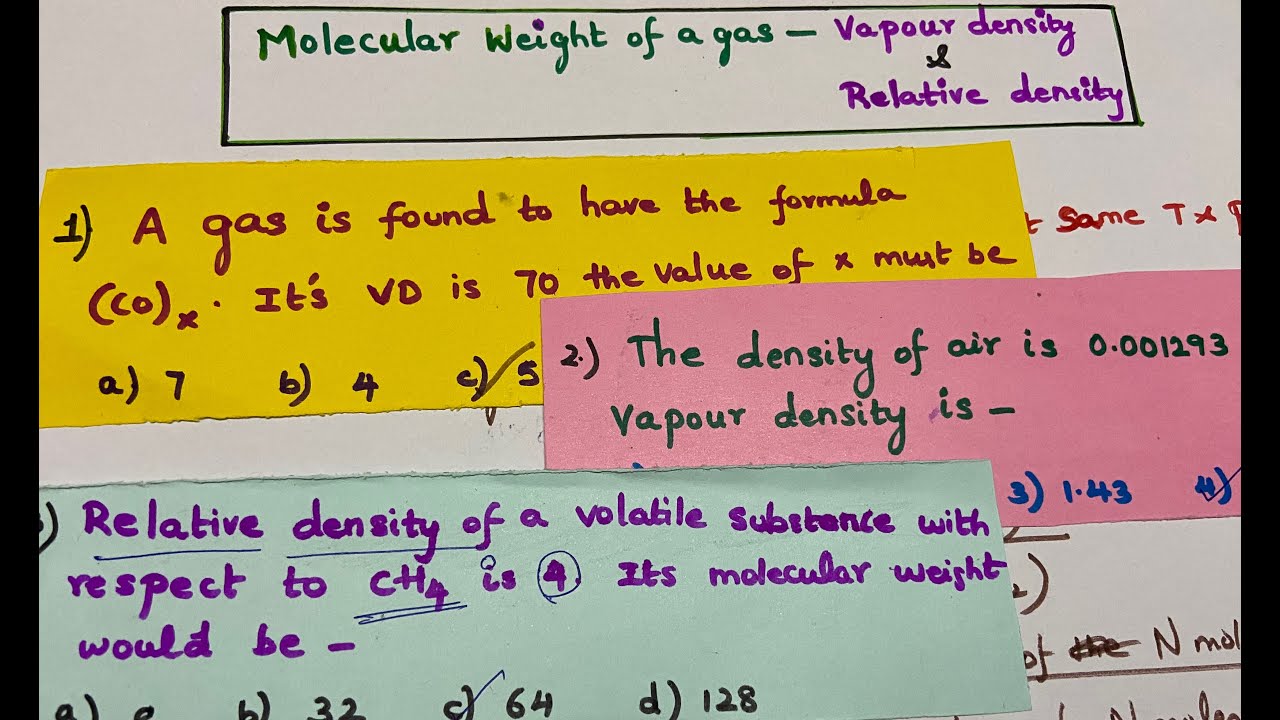 Molecular Weight of a gas – Vapour density
&
Relative density
1) A gas is found to have the formula
(CO)x. It's VD is 70 the value of x must be
a) 7 b) 4 c) 5
Same T &
2.) The density of air is 0.001293
Vapour density is –
3) 1.43 4)
Relative density of a volatile substance with
respect to CH4 is 4. Its molecular weight
would be –
a) b) 32 c) 64 d) 128
of the N mol